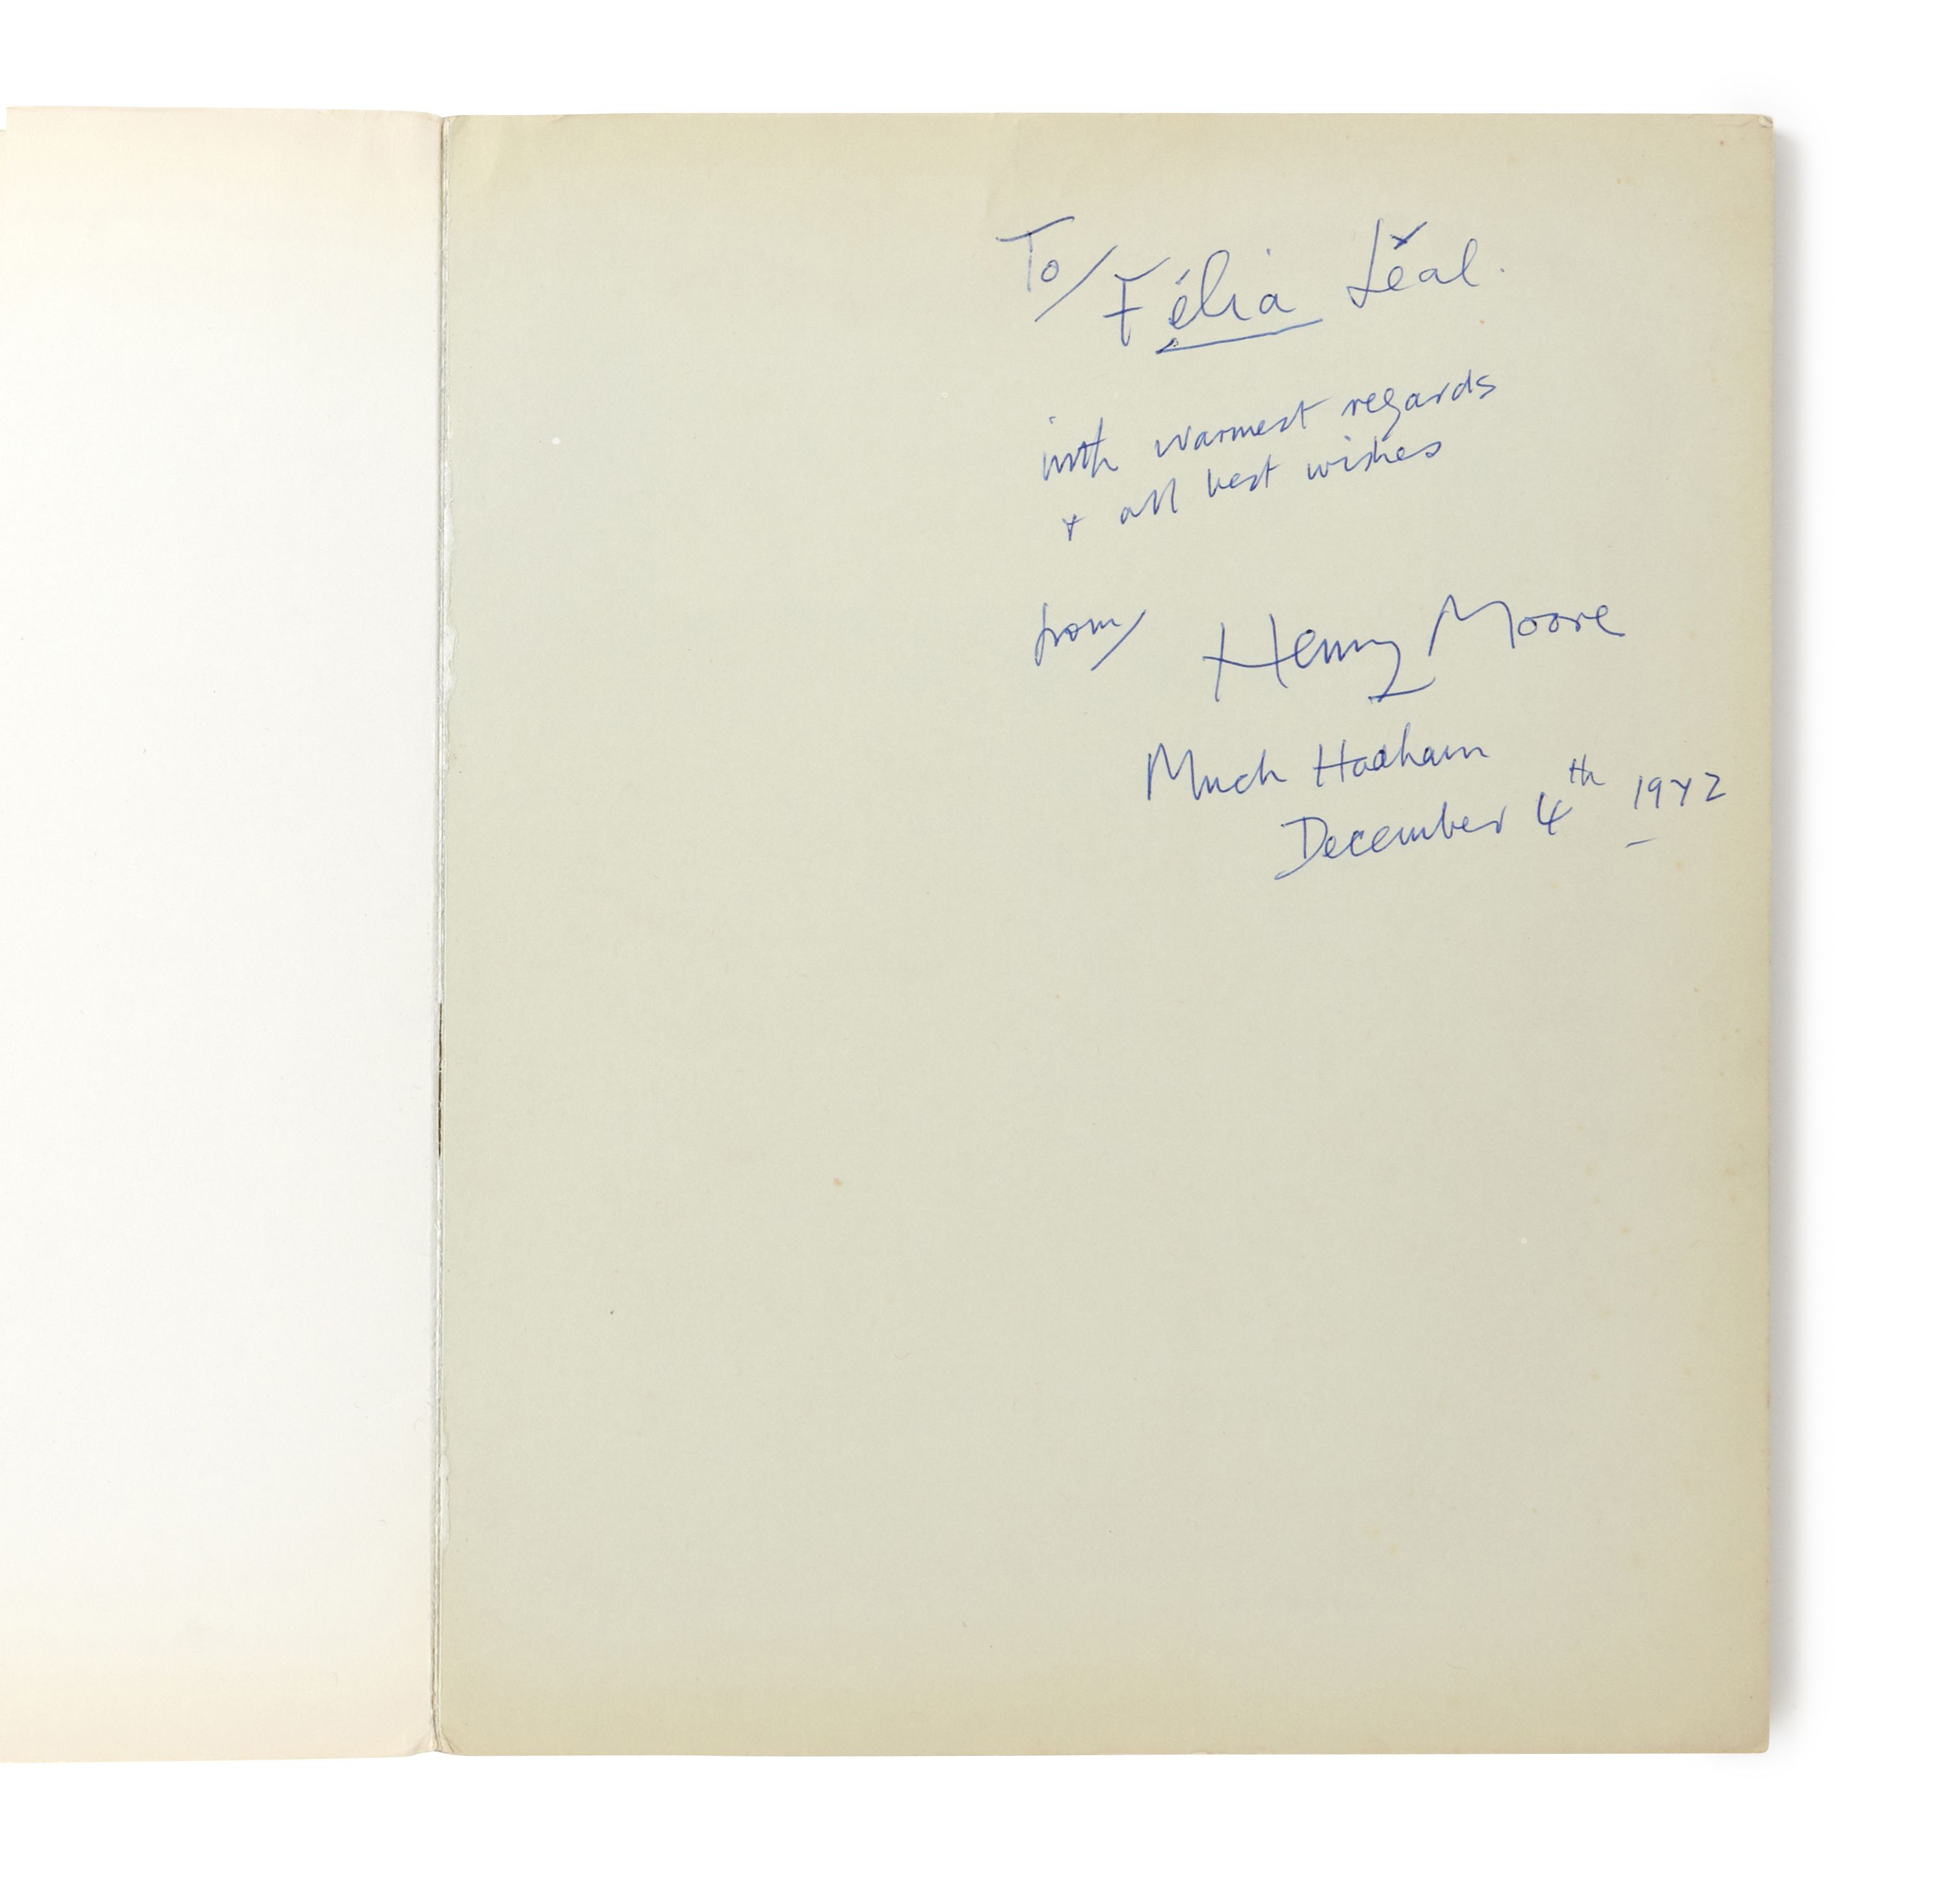 To/ Félia Leal.
with warmest regards
+ all best wishes
from/ Henry Moore
Much Hadham
December 4th 1972